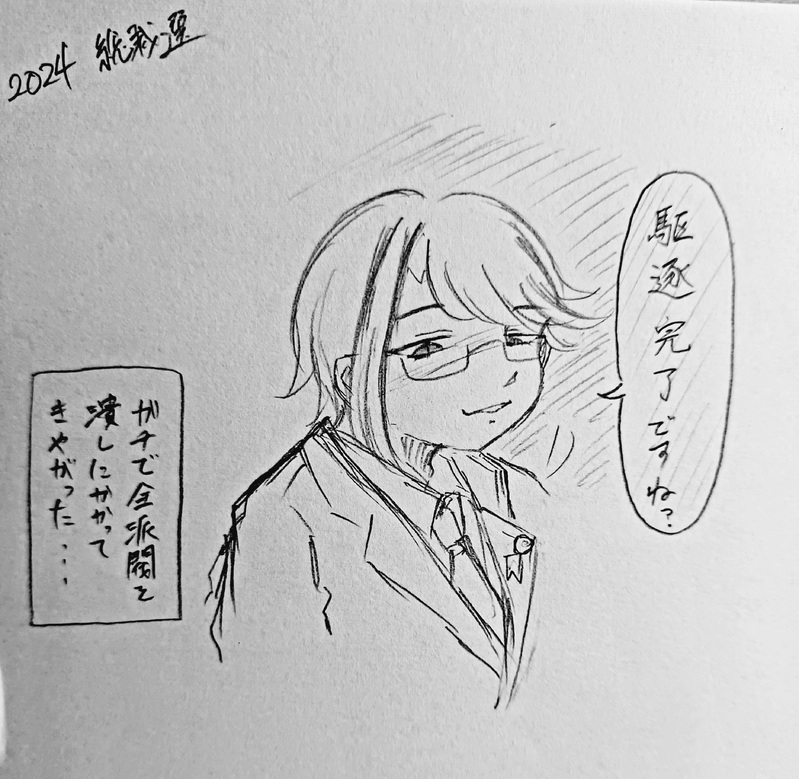 2024 総裁選
駆逐完了ですね?
ガチで全派閥を
潰しにかかって
きやがった…